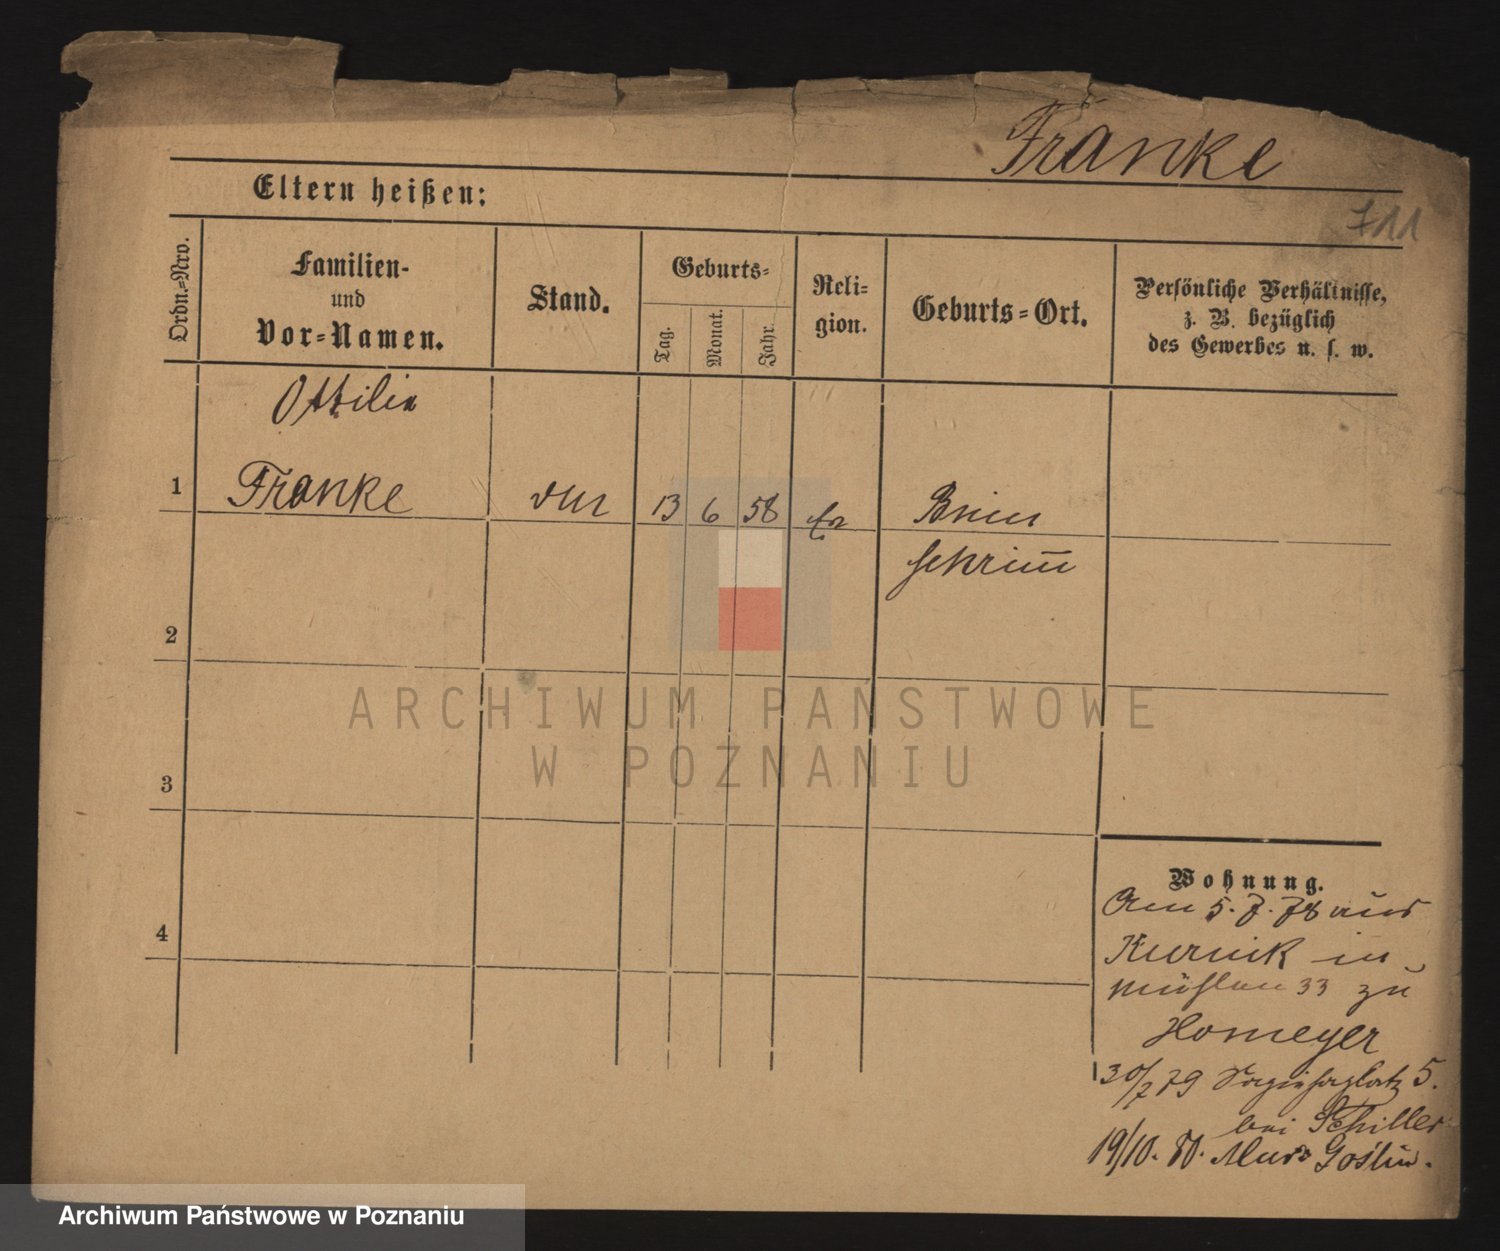 Franke
711
Eltern heißen:
Ordn.=Nro.
Familien-
und
Vor=Namen.
Stand.
Geburts=
Tag.
Monat.
Jahr.
Reli=
gion.
Geburts=Ort.
Persönliche Verhältnisse,
z. B. bezüglich
des Gewerbes u. s. w.
Ottilie
1 Franke 13 6 58
2
3
4
ARCHIWUM PAŃSTWOWE
W POZNANIU
Wohnung.
Am 5. 7. 78 aus
Kurnik in
Mühlen 33 zu
Homeyer
30/7 79 5.
bei Schiller
19/10. 80. Goslin.
Archiwum Państwowe w Poznaniu